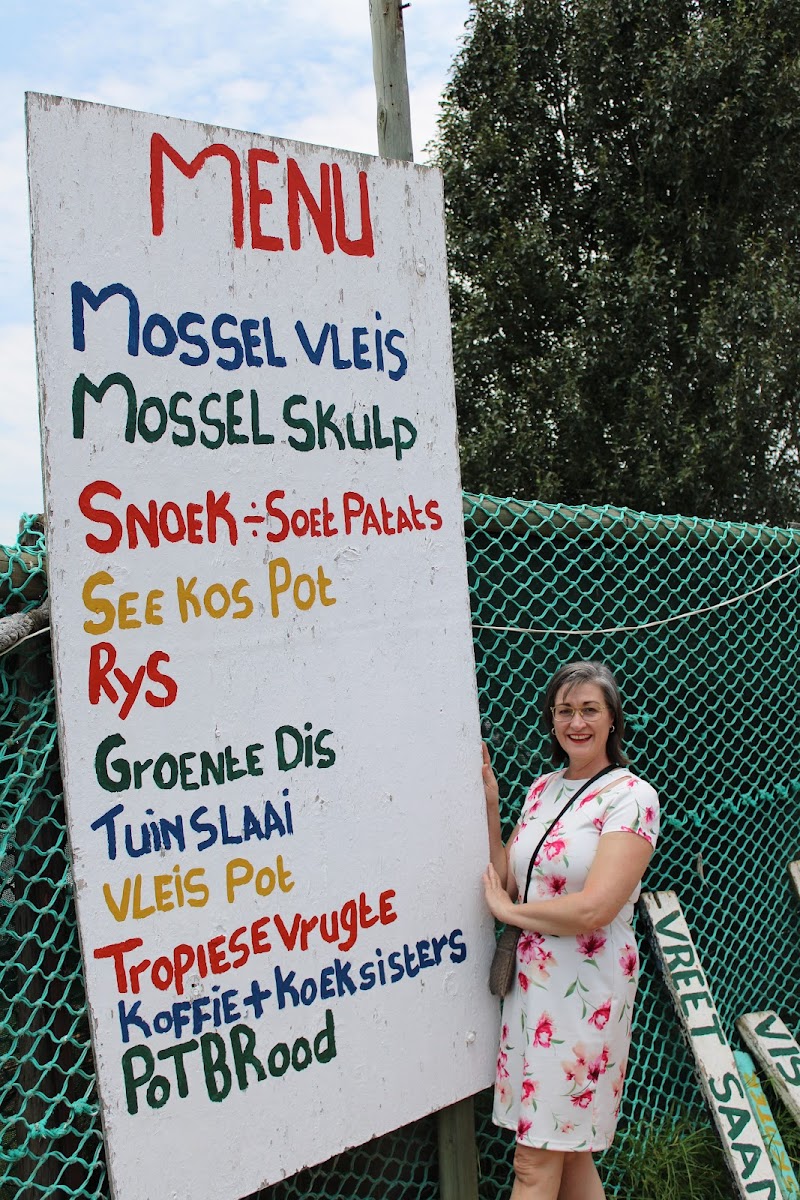 MENU
MOSSEL VLEIS
MOSSEL SKULP
SNOEK ÷ SOET PATATS
SEE KOS POT
RYS
GROENTE DIS
TUIN SLAAI
VLEIS POT
TROPIESE VRUGTE
KOFFIE + KOEKSISTERS
POTBROOD
VREET SAAM
VIS